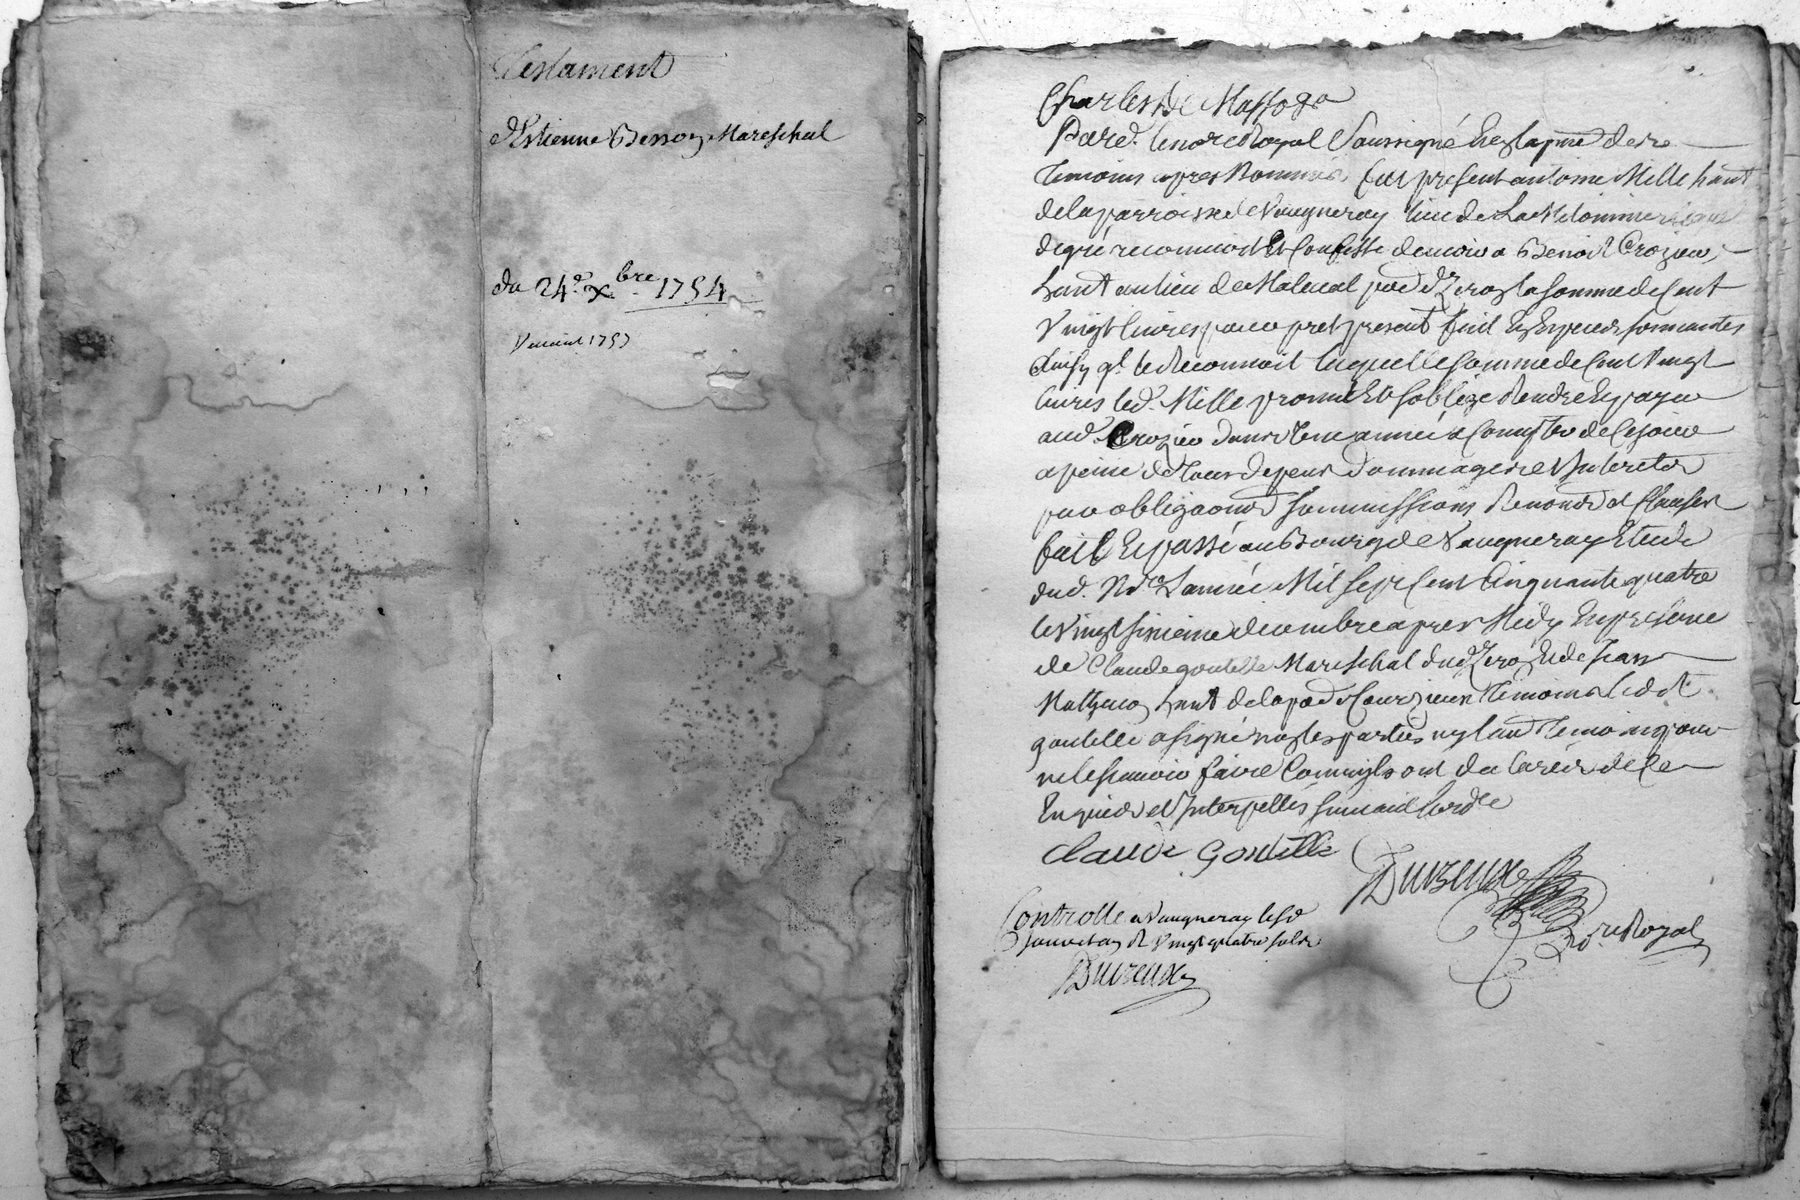 Testament
d'Estienne Besson Mareschal
du 24e. xbre 1754
Charles De Massogo
Pard. le nore Royal Soussigné En la pnce de ses
temoins apres Nommés fut present antoine Mille hant
de la parroisse de Vaugneray lieu de La
de gré reconnoist Et Confesse devoir a Benoit Crozier
hant au lieu de Maleval psse d'Izeron la somme de Cent
Vingt livres pour pret presant fait En Especes sonnantes
ainsy ql. le Reconnoit laquelle somme de Cent Vingt
livres led. Mille promet Et s'oblige Rendre Et payer
aud. Crozier dans Une année a Compter de Ce jour
a peine de tous depens Dommages et Interets
par obligaons soumissions Renonons et Clauses
fait Et passé au Bourg de Vaugneray Etude
dud. Nore L'année Mil sept Cent Cinquante quatre
le Vingt sixieme decembre apres Midy En presence
de Claude goutelle Mareschal dud. Izeron Et de Jean
hant de la psse de Courzieu temoins led.
goutelle a signé non les parties ny l'autre temoin pour
ne le scavoir faire Comm'ils ont declaré de Ce
Enquis et Interpellés suivant l'ordce
Claude Goutelle
Duvreux
Nore Royal
Controllé a Vaugneray led.
jour Reçu Vingt quatre sols
Duvreux